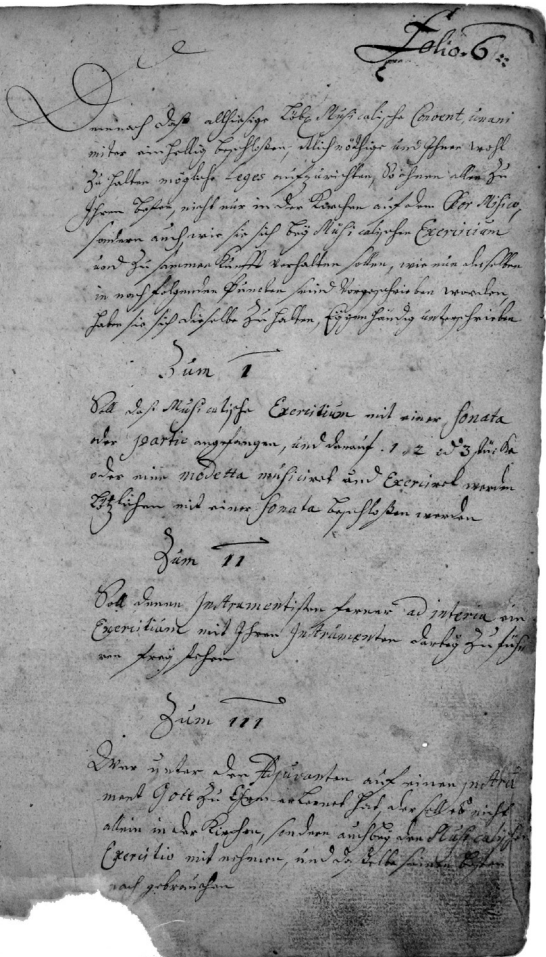 Folio. 6
Demnach daß allhiesige Löbl Musicalische Convent, unani
miter einhellig beschloßen, etlich nöthige und Ihnen wohl
zu halten mögliche Leges aufzurichten, So ihnen allen zu
Ihrem besten, nicht nur in der Kirchen auf dem Chor Musico,
sondern auch wie sie sich bey Musicalischen Exercitium
und Zusammen Künffte verhalten sollen, wie nun dieselben
in nach folgenden Puncten seind vorgeschrieben worden
haben sie sich dieselbe zu halten, Eygenhändig unterschrieben
Zum I
Soll daß Musicalische Exercitium mit einer Sonata
oder partie angefangen, und darauf 1 2 3 stücke
oder eine modetta musiciret und Exerciret werden
Letzlichen mit einer Sonata beschloßen werden
Zum II
Soll denen Instrumentisten ferner ad interim ein
Exercitium mit Ihren Instrumenten darbey zu füh
ren frey stehen
Zum III
Wer unter den Adjuvanten auf einen Instru
ment Gott zu Ehren erlernet hat, der soll es nicht
allein in der Kirchen, sondern auch bey den Musicalischen
Exercitio mit nehmen, und daselbe seinen besten
nach gebrauchen